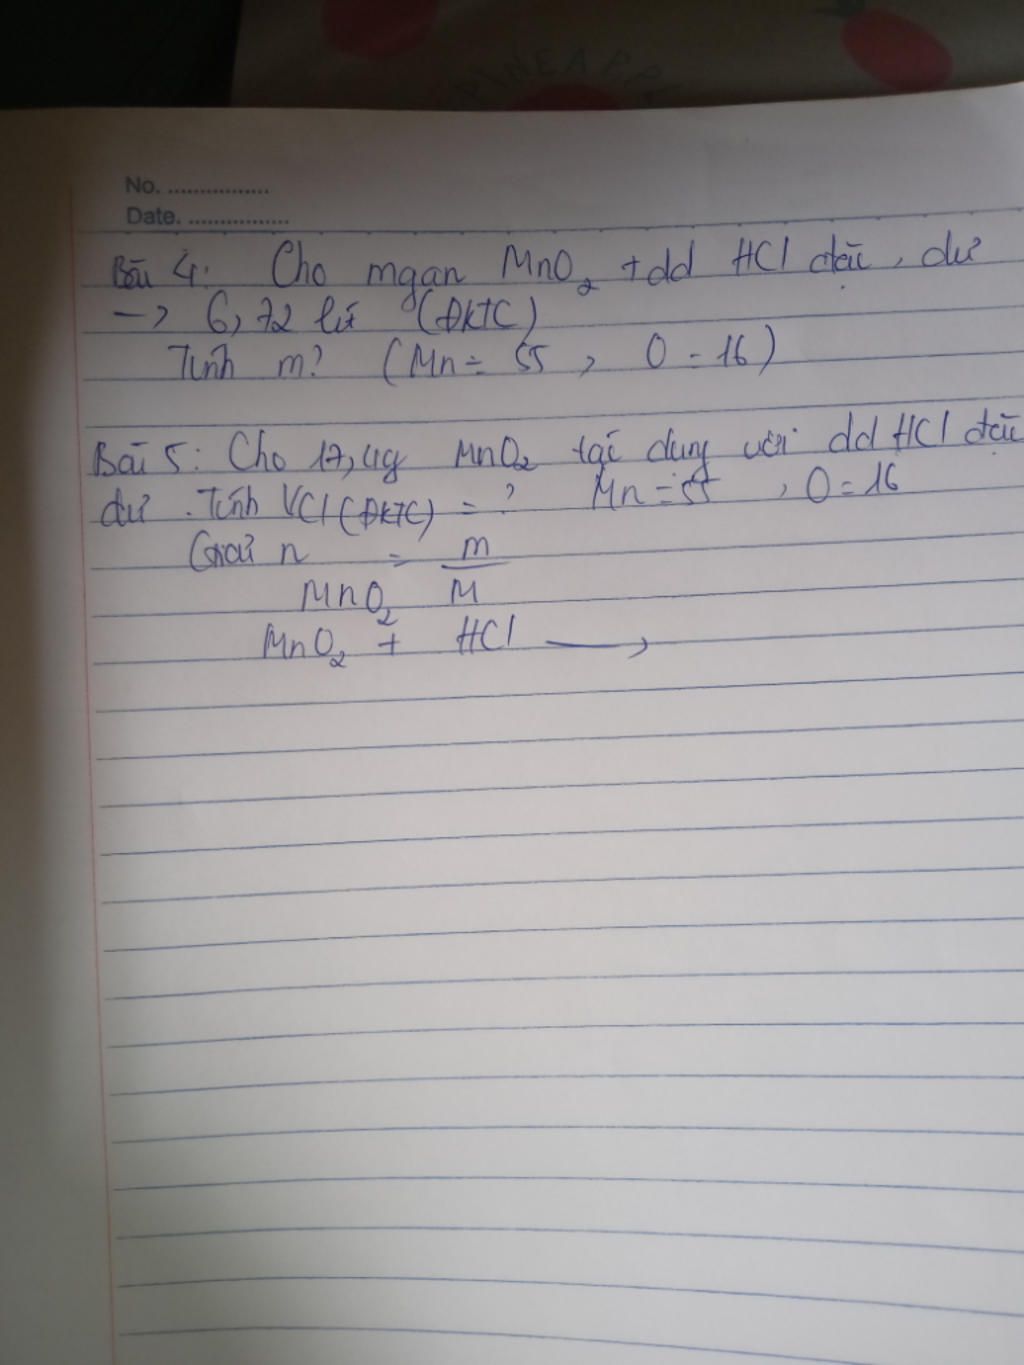 PINEAPP
No. ................
Date. ................
Bài 4: Cho mgam MnO2 + dd HCl đặc, dư
-> 6,72 lít (ĐKTC)
Tính m? (Mn = 55, O = 16)
Bài 5: Cho 17,4g MnO2 tác dụng với dd HCl đặc
dư. Tính VCl (ĐKTC) = ? Mn = 55, O = 16
Giải n = m
MnO2 M
MnO2 + HCl ⟶